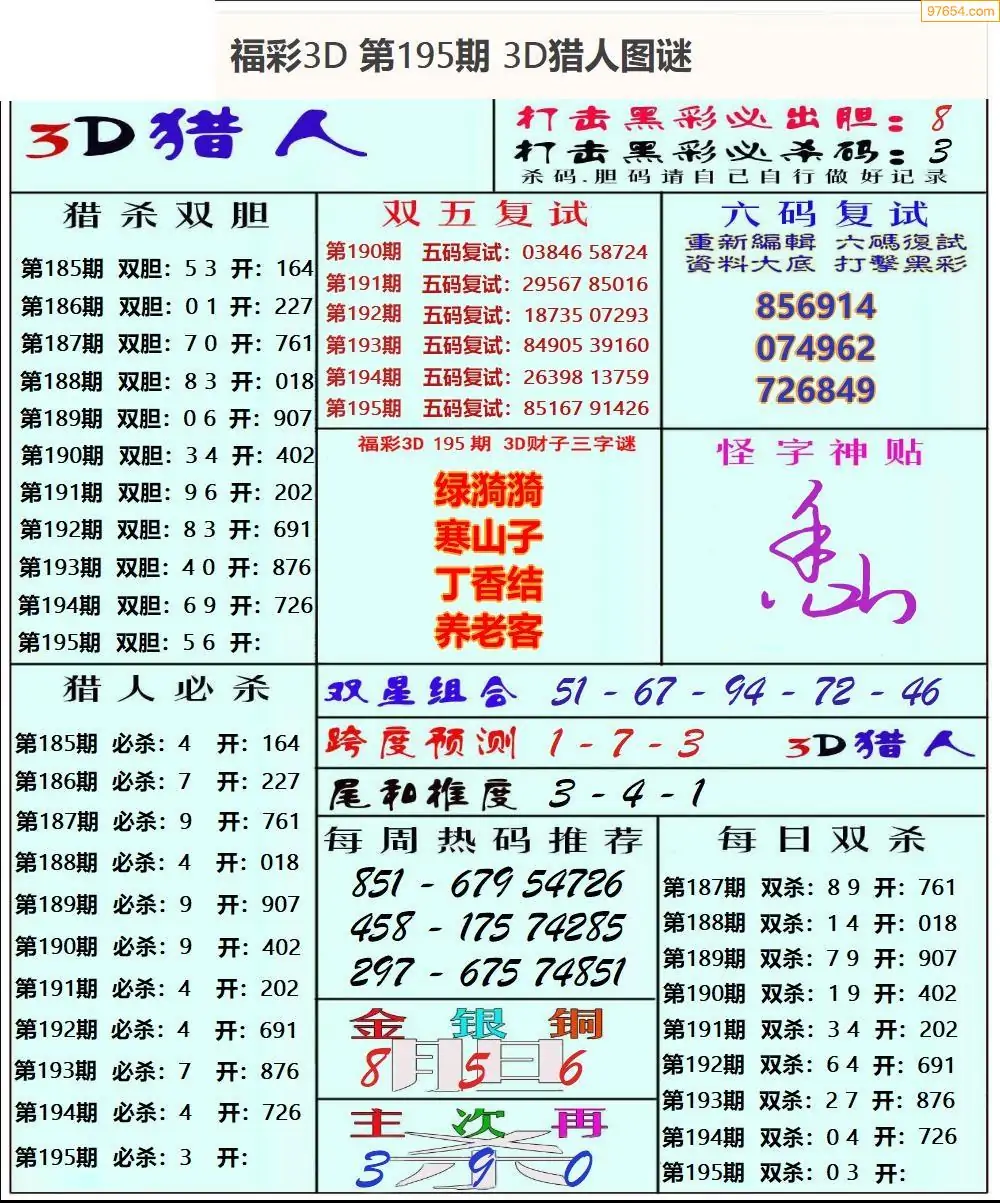 97654.com
福彩3D 第195期 3D猎人图谜
3D猎人
打击黑彩必出胆：8
打击黑彩必杀码：3
杀码.胆码请自己自行做好记录
猎杀双胆
第185期 双胆：5 3 开：164
第186期 双胆：0 1 开：227
第187期 双胆：7 0 开：761
第188期 双胆：8 3 开：018
第189期 双胆：0 6 开：907
第190期 双胆：3 4 开：402
第191期 双胆：9 6 开：202
第192期 双胆：8 3 开：691
第193期 双胆：4 0 开：876
第194期 双胆：6 9 开：726
第195期 双胆：5 6 开：
双五复试
第190期 五码复试：03846 58724
第191期 五码复试：29567 85016
第192期 五码复试：18735 07293
第193期 五码复试：84905 39160
第194期 五码复试：26398 13759
第195期 五码复试：85167 91426
六码复试
重新編輯 六碼復試
資料大底 打擊黑彩
856914
074962
726849
福彩3D 195 期 3D财子三字谜
绿漪漪
寒山子
丁香结
养老客
怪字神贴
猎人必杀
第185期 必杀：4 开：164
第186期 必杀：7 开：227
第187期 必杀：9 开：761
第188期 必杀：4 开：018
第189期 必杀：9 开：907
第190期 必杀：9 开：402
第191期 必杀：4 开：202
第192期 必杀：4 开：691
第193期 必杀：7 开：876
第194期 必杀：4 开：726
第195期 必杀：3 开：
双星组合 51 - 67 - 94 - 72 - 46
跨度预测 1 - 7 - 3 3D猎人
尾和推度 3 - 4 - 1
每周热码推荐
851 - 679 54726
458 - 175 74285
297 - 675 74851
金银铜
胆
8 5 6
主次再
杀
3 9 0
每日双杀
第187期 双杀：8 9 开：761
第188期 双杀：1 4 开：018
第189期 双杀：7 9 开：907
第190期 双杀：1 9 开：402
第191期 双杀：3 4 开：202
第192期 双杀：6 4 开：691
第193期 双杀：2 7 开：876
第194期 双杀：0 4 开：726
第195期 双杀：0 3 开：